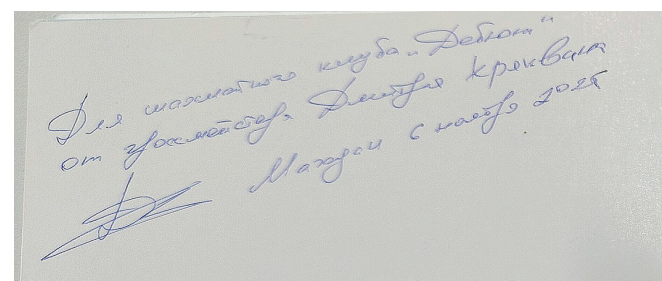 Для шахматного клуба „Дебют“
от гроссмейстера Дмитрия Кряквина
Магадан 6 ноября 2025